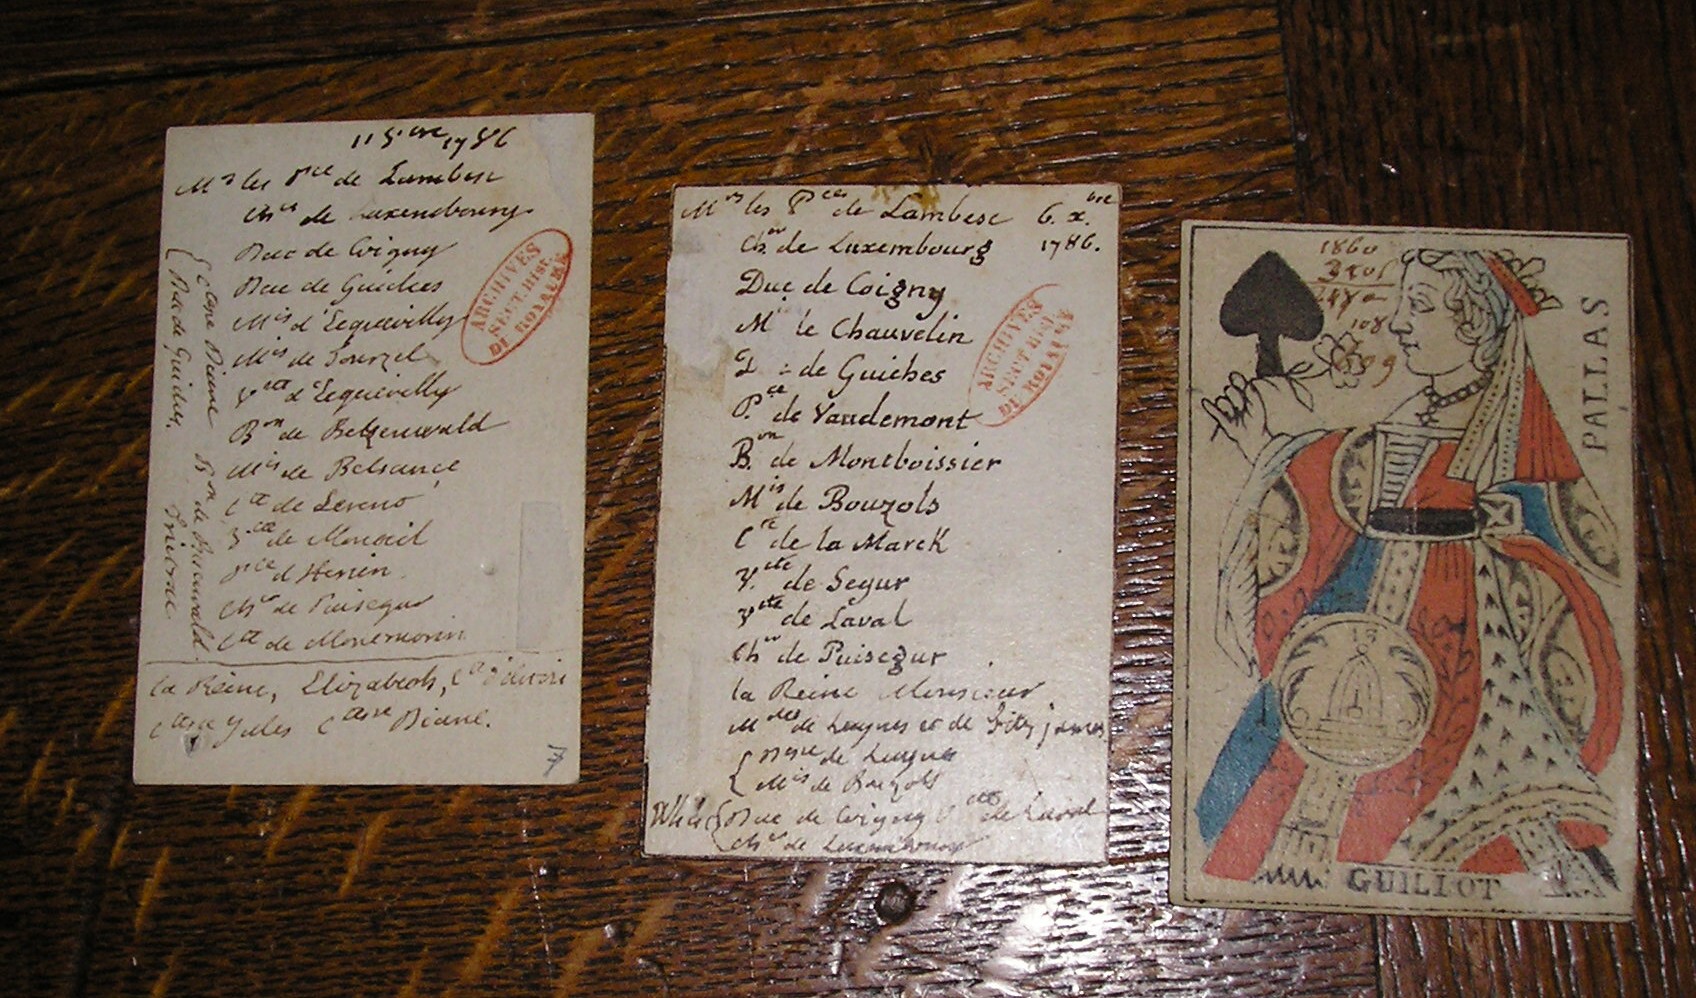 11 9.bre 1786
Mrs les Pce de Lambesc
Cher de Luxembourg
Duc de Coigny
Duc de Guiches
Mis d'Ecquevilly
Mis de Tourzel
Vte d'Ecquevilly
Bon de Bezenwald
Mis de Belsunce
Cte de
Vte de
Pce d'Henin
Chr de Puisegur
Cte de Montmorin
la Reine, Elizabeth,
Ctesse Jules Ctesse Diane.
7
Ctesse Diane Bon de Bezenwald.
Duc de Guiches.
ARCHIVES
SECT. HIST.
DU ROYAUME
Mrs les Pces de Lambesc 6. x.bre
Chr de Luxembourg 1786.
Duc de Coigny
Mis de Chauvelin
D de Guiches
Pce de Vaudemont
Bon de Montboissier
Mis de Bouzols
Cte de la Marck
Vte de Segur
Vte de Laval
Chr de Puisegur
la Reine Monsieur
Mdes de Luynes et de Fitzjames
Dsse de Luynes
Mis de Bouzols
Duc de Coigny Vte de Laval
Chr de Luxembourg
ARCHIVES
SECT. HIST.
DU ROYAUME
1860
108
PALLAS
GUILLOT